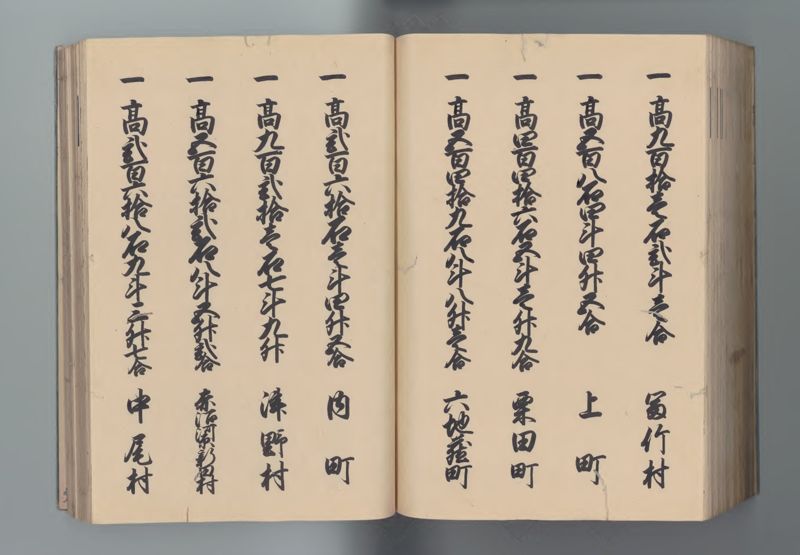 一 高九百拾壱石弐斗壱合 冨竹村
一 高五百八石四斗四升五合 上町
一 高四百四拾六石五斗壱升九合 栗田町
一 高五百四拾九石八斗八升壱合 六地蔵町
一 高弐百六拾石壱斗四升五合 内町
一 高九百弐拾壱石七斗九升 津野村
一 高五百六拾弐石八斗五升弐合 赤沼
一 高弐百六拾八石九斗三升七合 中尾村